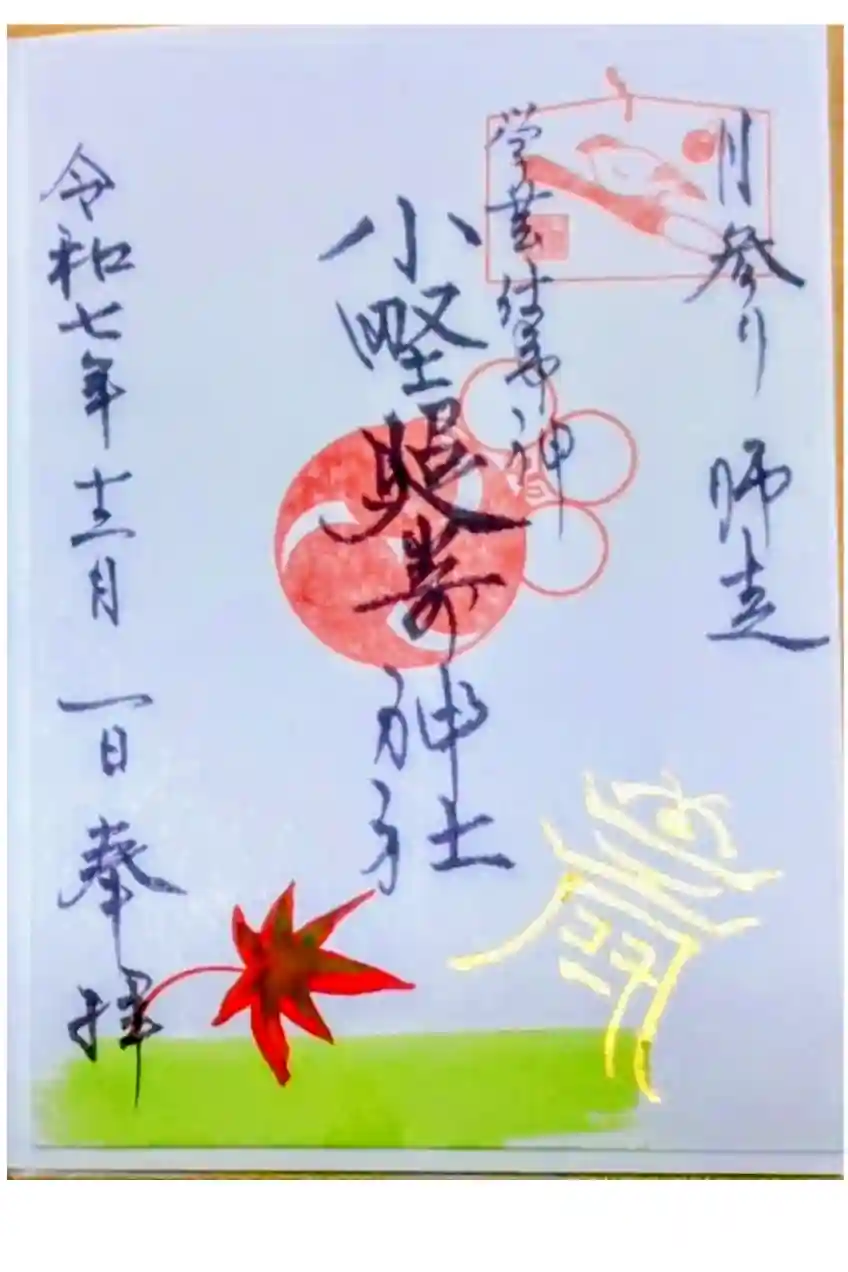 月参り 師走
学芸仕事神
小野照崎神社
令和七年十二月 一日 奉拝